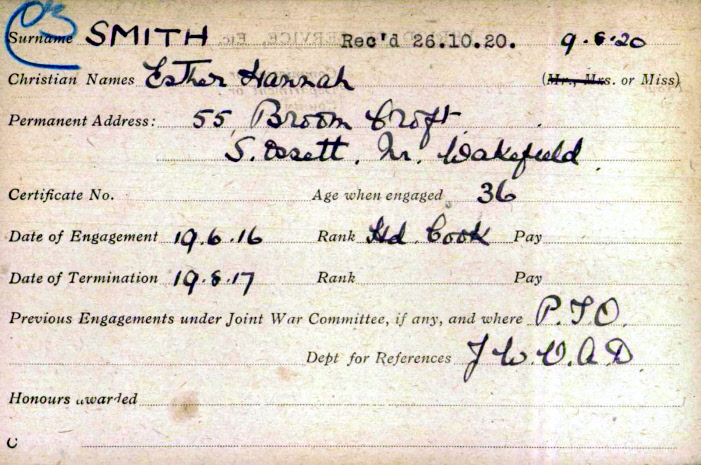 Surname SMITH Rec'd 26.10.20. 9.8.20
Christian Names Esther Hannah (Mr., Mrs. or Miss)
Permanent Address: 55, Broom Croft.
S. Ossett. Nr. Wakefield
Certificate No. Age when engaged 36
Date of Engagement 19.6.16 Rank Hd. Cook Pay
Date of Termination 19.8.17 Rank Pay
Previous Engagements under Joint War Committee, if any, and where P.T.O.
Dept for References J.W.V.A.D.
Honours awarded
C